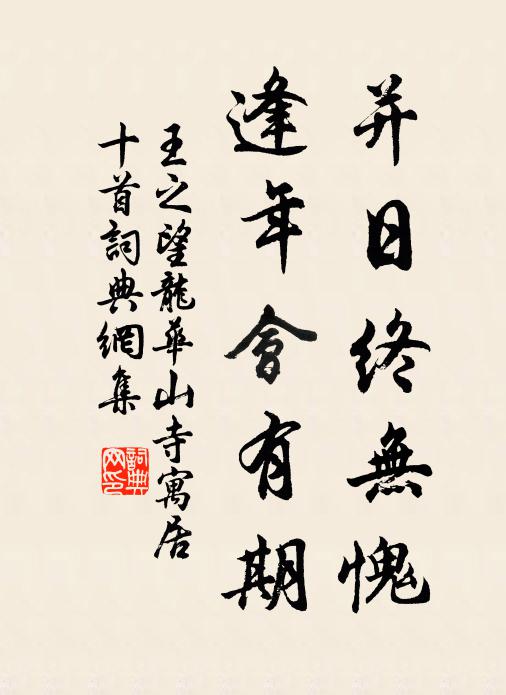 并日終無愧
逢年會有期
王之望龍華山寺寓居
十首詞典網集
詞典
网印